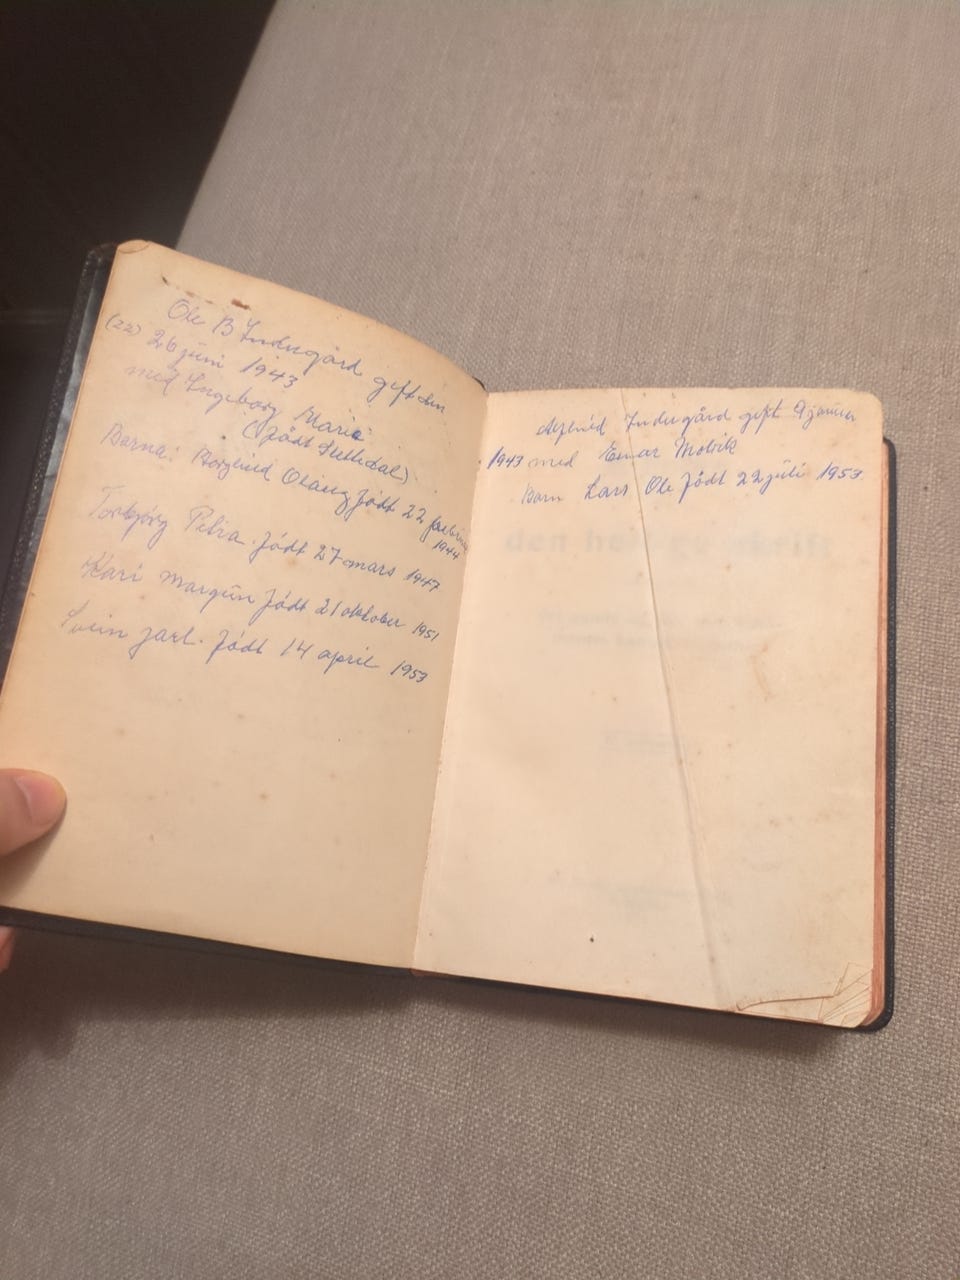 Ole B Indregård gift den
(22) 26 juni 1943
med Ingeborg Marie
(født Settedal)
Barna: Borghild Olaug født 22 februar
1944
Torbjørg Petra. født 27 mars 1947
Kari Margun født 21 oktober 1951
Svein Jarl. født 14 april 1953
Indregård gift 9 januar
1943 med Einar Molvik
Barn Lars Ole født 22 juli 1953
den heilage skrift